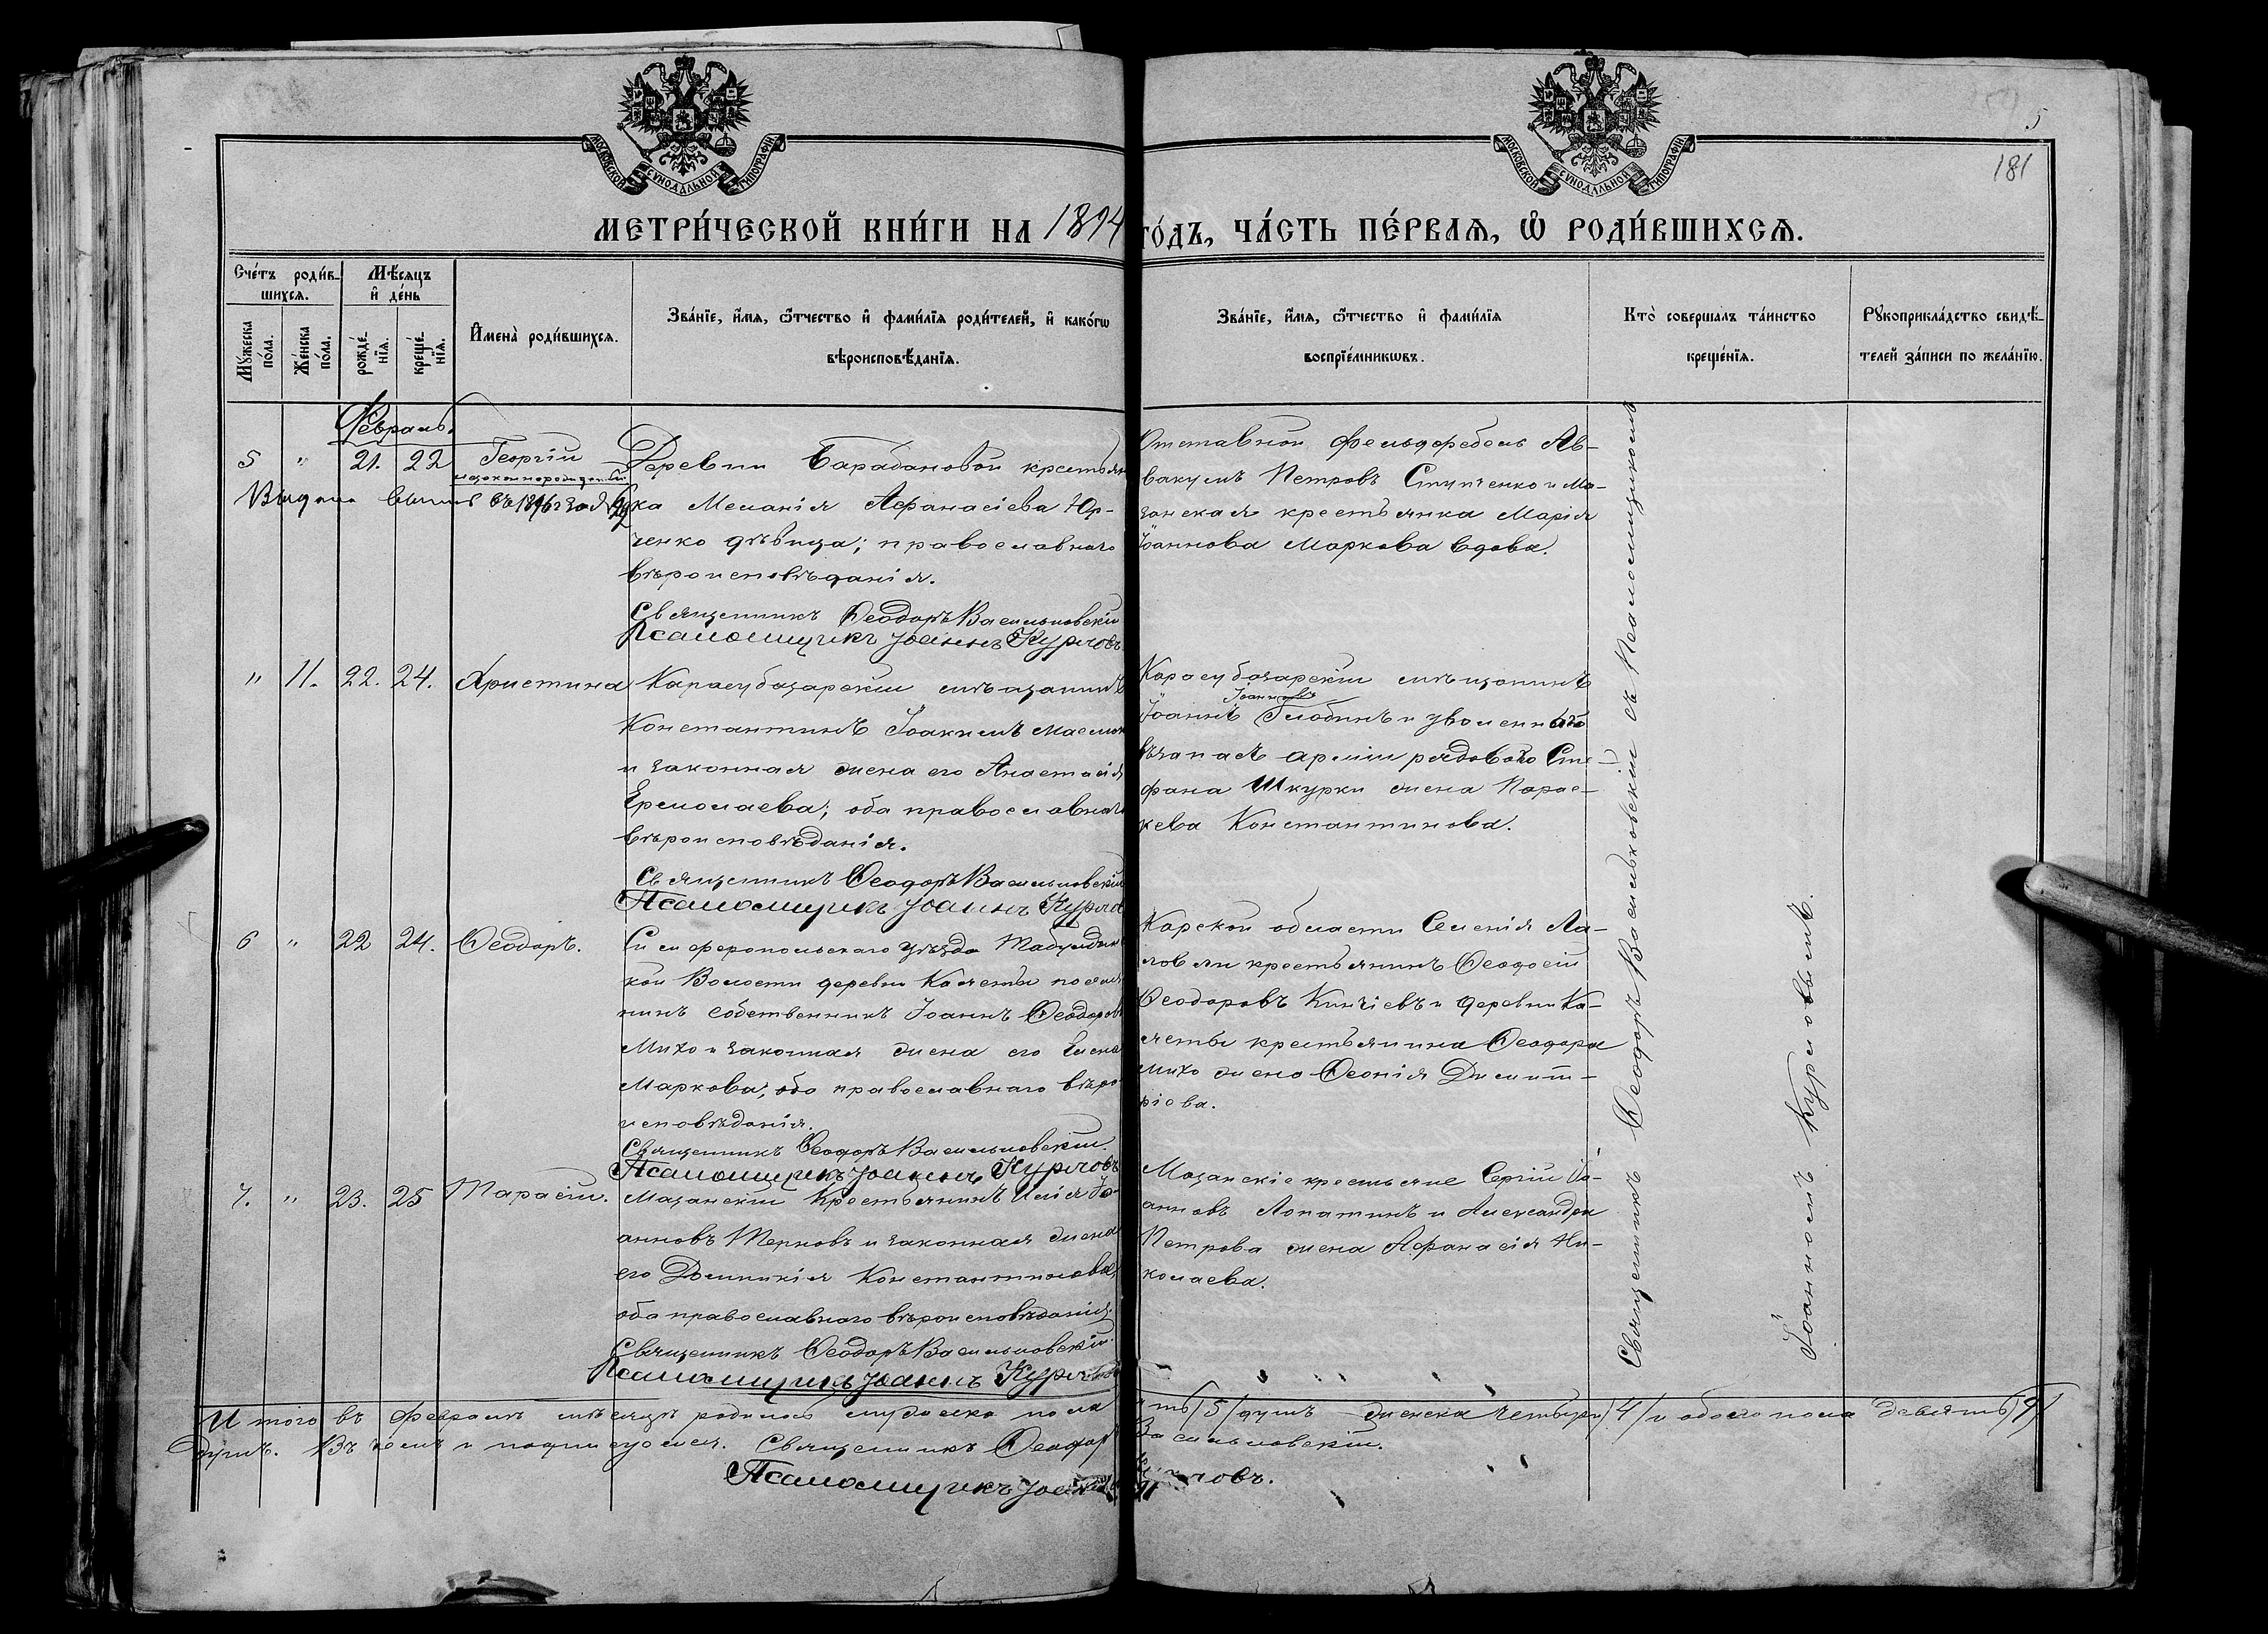 5
181
МОСКОВСКОЙ СѴНОДАЛЬНОЙ ТИПОГРАФІИ.
МОСКОВСКОЙ СѴНОДАЛЬНОЙ ТИПОГРАФІИ.
МЕТРИ́ЧЕСКОЙ КНИ́ГИ НА 1894
ГО́ДЪ, ЧА́СТЬ ПЕ́РВАѦ, Ѡ РОДИ́ВШИХСѦ.
Сче́тъ роди́в-
шихсѧ.
Мѣ́сѧцъ
и҆ де́нь
Мꙋ́жеска
по́ла.
Же́нска
по́ла.
рожде́-
нїѧ.
креще́-
нїѧ.
И҆мена̀ роди́вшихсѧ.
Зва́нїе, и҆́мѧ, ѻ҆́тчество и҆ фами́лїѧ роди́телей, и҆ како́гѡ
вѣроисповѣ́данїѧ.
Зва́нїе, и҆́мѧ, ѻ҆́тчество и҆ фами́лїѧ
воспрїе́мникѡвъ.
Кто̀ соверша́лъ та́инство
креще́нїѧ.
Рꙋкоприкла́дство свидѣ́-
телей за́писи по жела́нїю.
Февраль.
5 " 21. 22 Георгій
незаконнорожденный
Деревни Барабановой крестьян
ка Меланія Аѳанасіева Юр-
ченко дѣвица; православнаго
вѣроисповѣданія.
Священникъ Ѳеодоръ Васильковскій
Псаломщикъ Іоаннъ Курловъ
Отставной фельдфебель Ав-
вакумъ Петровъ Ступченко и Ма-
занская крестьянка Марія
Іоаннова Маркова вдова.
" 11. 22. 24. Христина
Карасубазарскій мѣщанинъ
Константинъ Іоакимъ
и законная жена его Анастасія
Ермолаева; оба православнаго
вѣроисповѣданія.
Священникъ Ѳеодоръ Васильковскій
Псаломщикъ Іоаннъ Курло
Карасубазарскій мѣщанинъ
Іоанновъ
Іоаннъ Глобинъ и уволеннаго
въ запасъ арміи рядового Сте-
фана Шкурки жена Парас-
кева Константинова.
6 " 22 24. Ѳеодоръ.
Симферопольскаго уѣзда Табулдын
кой Волости деревни Калеты посел
нинъ собственникъ Іоаннъ Ѳеодоров
Михо и законная жена его Елена
Маркова; оба православнаго вѣро
исповѣданія.
Священникъ Ѳеодоръ Васильковскій.
Псаломщикъ Іоаннъ Курловъ
Карской области Селенія Ла-
ловли крестьянинъ Ѳеодосій
Ѳеодоровъ Кинчіевъ и деревни Ка-
леты крестьянина Ѳеодора
Михо жена Ѳеонія Димит-
ріева.
7. " 23. 25 Тарасій.
Мазанскій Крестьянинъ Илія Іо-
анновъ Терновъ и законная жена
его Домникія Константинова,
оба православнаго вѣроисповѣданія.
Священникъ Ѳеодоръ Васильковскій.
Псаломщикъ Іоаннъ Курловъ
Мазанскіе крестьяне Сергій Іо-
анновъ Лопатинъ и Александра
Петрова жена Аѳанасія Ни-
колаева.
Священникъ Ѳеодоръ Васильковскій съ Псаломщикомъ
Іоанномъ Курловымъ.
Итого въ февралѣ мѣсяцѣ родилось мужеска пола
ять /5/ душъ женска четыре /4/ и обоего пола девять /9/
душъ. Въ чемъ и подписуемся. Священникъ Ѳеодор
Васильковскій.
Псаломщикъ Іоаннъ
ловъ.